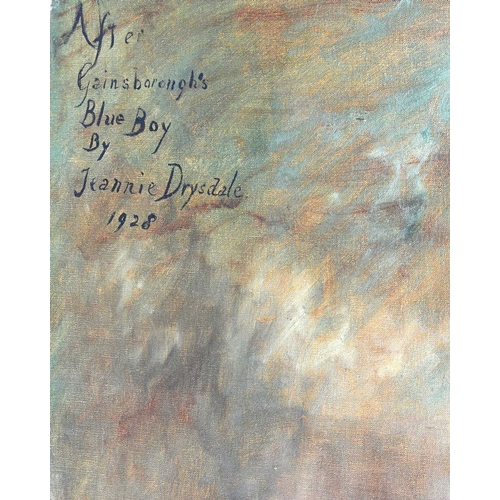 After
Gainsborough's
Blue Boy
By
Jeannie Drysdale.
1928